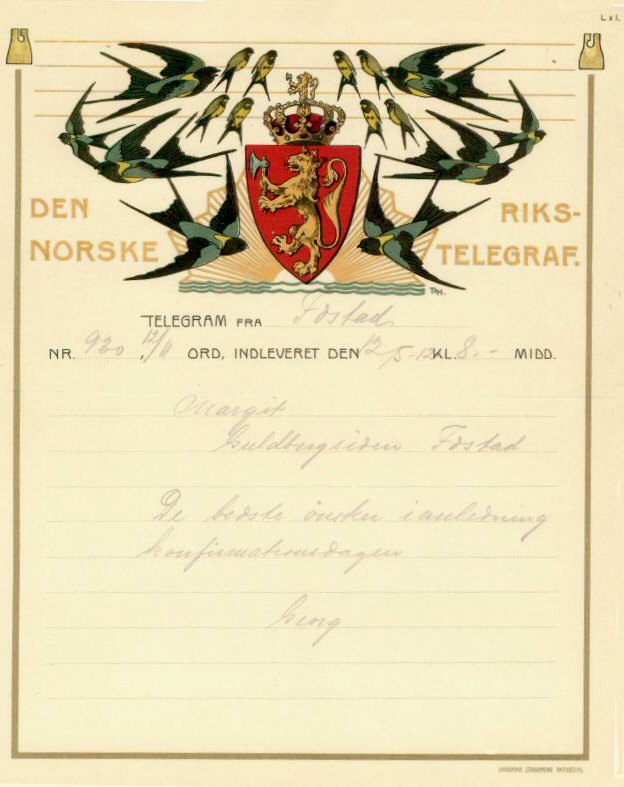 L x 1.
DEN NORSKE RIKS-TELEGRAF.
TH.
TELEGRAM FRA Fdstad
NR. 930, 12/11 ORD, INDLEVERET DEN 12/5-12 KL. 8.- MIDD.
Margit
Guldbergsiden Fdstad
De bedste önsker i anledning
konfirmationsdagen
Georg